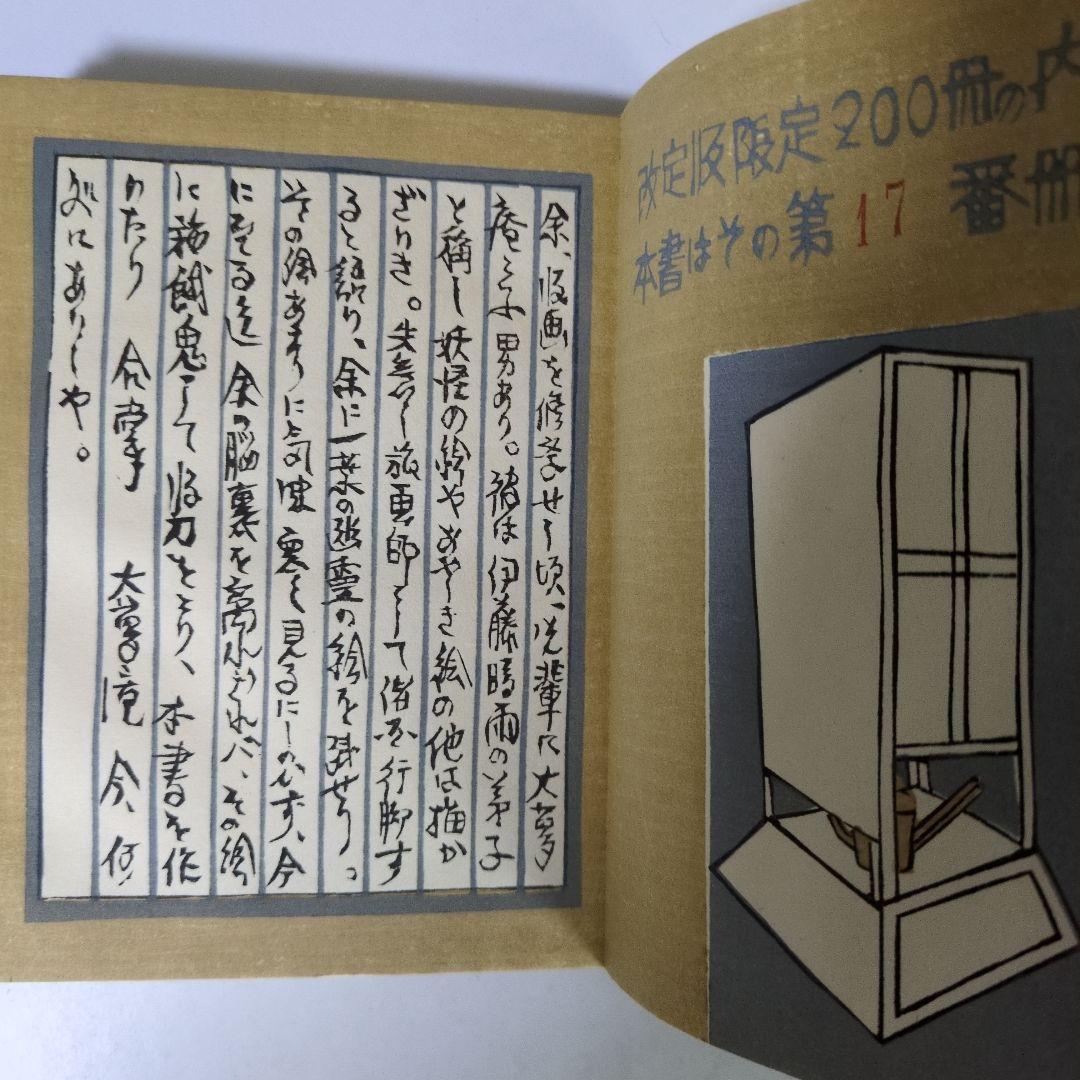 改定版限定200冊の内
本書はその第17番冊
余、版画を修学せし頃、先輩に大夢
庵と云ふ男あり。彼は伊藤時雨の弟子
と稱し妖怪の絵やあやしき絵の他は描か
ざりき。失恋し旅画師として諸国行脚す
ると語り、余に一葉の幽霊の絵を残せり。
その絵あまりに気味悪く見るにしのびず、今
に至る迄余の脳裏を離れざれば、その絵
に務餓鬼して版刀をとり、本書を作
りたり 合掌 大夢庵 今、何
処にありしや。